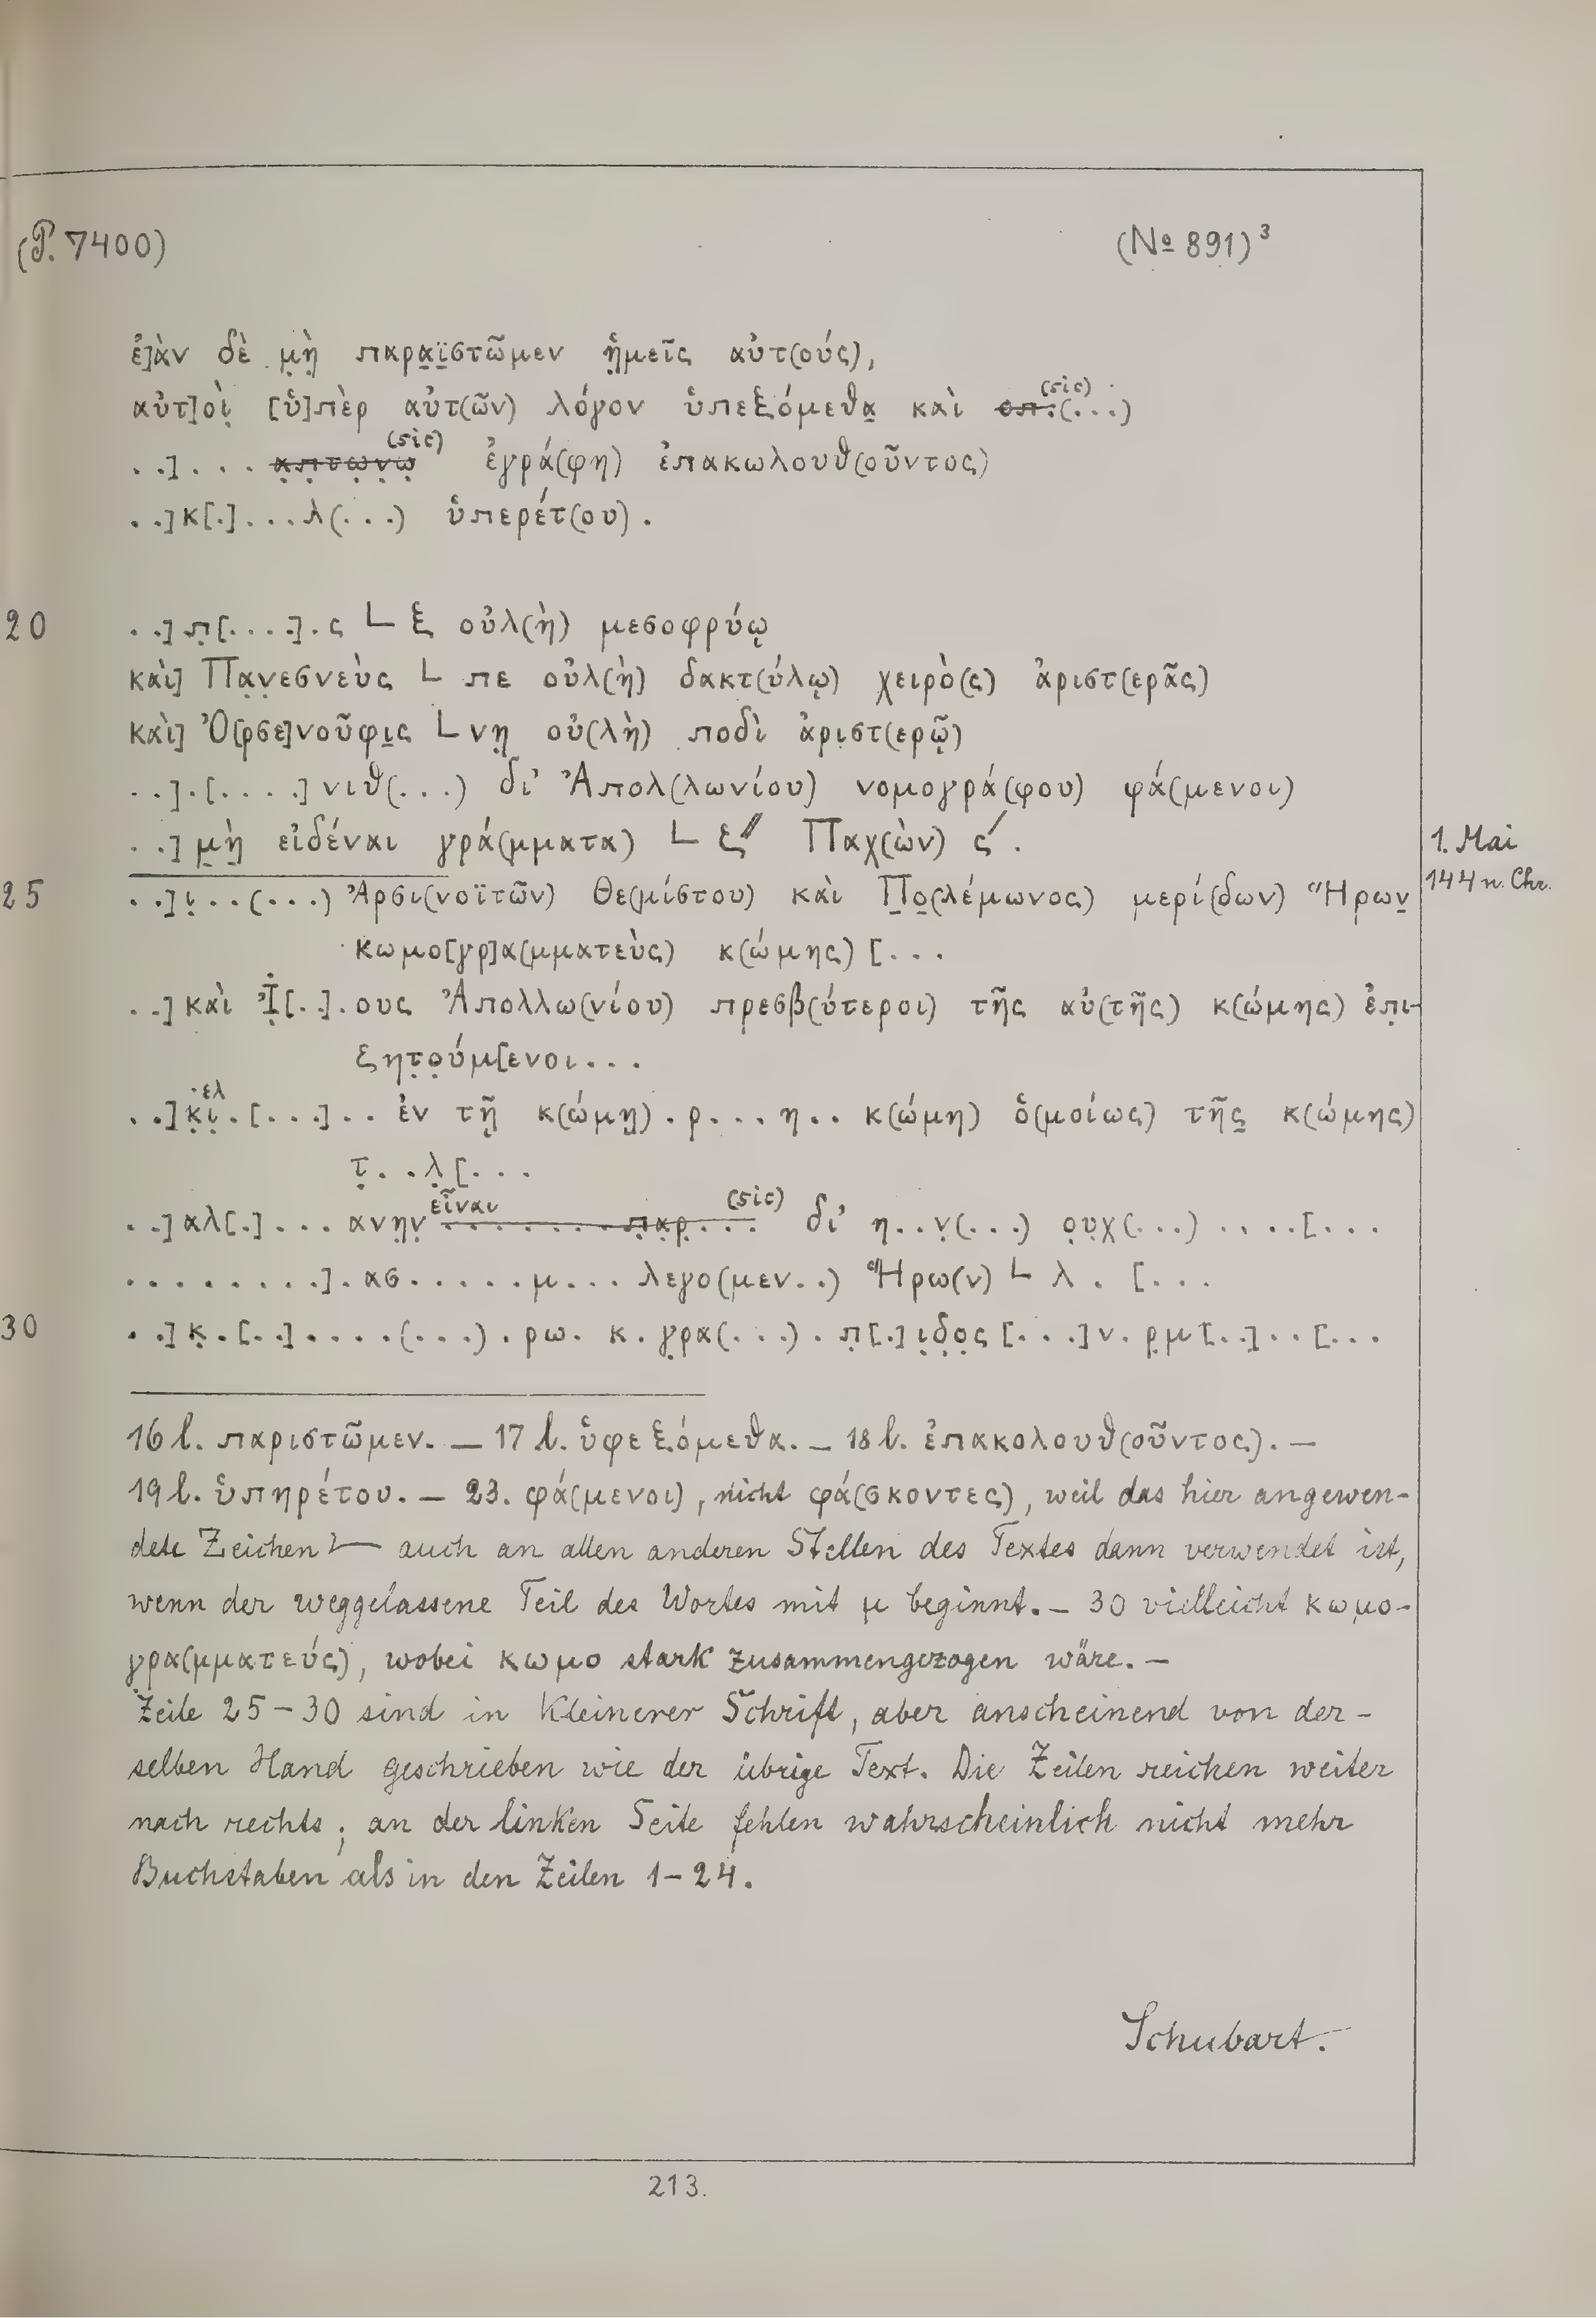 (P. 7400) (№ 891)³
ἐ]ὰν δὲ μ̣ὴ̣ παρα̣ϊ̣στῶμεν ἡ̣μεῖς αὐτ(ούς),
αὐτ]οὶ̣ [ὑ]πὲρ αὐτ(ῶν) λόγον ὑπεξόμεθα̣ καὶ ο̶π̶.(...) (sic)
..].... α̣π̣τω̣ν̣ω̣ (sic) ἐγρά(φη) ἐπακωλουθ(οῦντος)
..]κ[.]...λ(...) ὑπερέτ(ου).
20 ..]π̣[....].ς └ ξ οὐλ(ὴ) μεσοφρύῳ
καὶ] Πα̣ν̣εσνεὺς └ πε οὐλ(ὴ) δακτ(ύλῳ) χειρὸ(ς) ἀριστ(ερᾶς)
καὶ] Ὀ[ρσε]νοῦφι̣ς └ νη̣ οὐ(λὴ) ποδὶ ἀρι̣στ(ερῷ)
..].[....]νιθ(...) δι’ Ἀπολ(λωνίου) νομογρά(φου) φά(μενοι)
..] μ̣ὴ̣ εἰδέναι γρά(μματα) └ ζ̸ʹ Παχ(ὼν) ϛʹ. 1. Mai
25 ..]ι̣..(...) Ἀρσι(νοϊτῶν) Θε(μίστου) καὶ Π̣ο̣(λέμωνος) μερί(δων) Ἥρων̣ 144 n. Chr.
κωμο[γρ]α(μματεὺς) κ(ώμης) [...
..] καὶ Ἰ̣[..].ους Ἀπολλω(νίου) πρεσβ(ύτεροι) τῆς αὐ(τῆς) κ(ώμης) ἐπ̣ι-
ζητ̣ο̣ύμ[ενοι...
.ελ
..]κ̣ι̣.[...].. ἐν τῇ κ(ώμῃ).ρ...η.. κ(ώμη) ὁ(μοίως) τῆς̣ κ(ώμης)
τ̣..λ̣[...
..]αλ[.]... ανη̣ν̣ εἶναι .......π̣α̣ρ̣... (sic) δι’ η..ν̣(...) ο̣υ̣χ(...) ....[...
.........].ασ......μ... λεγο(μεν..) Ἥρω(ν) └ λ. [...
30 ..]κ̣.[..]....(...).ρω. κ.γ̣ρα(...).π̣[.]ι̣δ̣ο̣ς[...]ν.ρ̣μ[..]..[...
16 l. παριστῶμεν. — 17 l. ὑφεξόμεθα. — 18 l. ἐπακολουθ(οῦντος). —
19 l. ὑπηρέτου. — 23. φά(μενοι), nicht φά(σκοντες), weil das hier angewen-
dete Zeichen auch an allen anderen Stellen des Textes dann verwendet ist,
wenn der weggelassene Teil des Wortes mit μ beginnt. — 30 vielleicht κωμο-
γρα(μματεύς), wobei κωμο stark zusammengezogen wäre. —
Zeile 25-30 sind in kleinerer Schrift, aber anscheinend von der-
selben Hand geschrieben wie der übrige Text. Die Zeilen reichen weiter
nach rechts; an der linken Seite fehlen wahrscheinlich nicht mehr
Buchstaben als in den Zeilen 1-24.
Schubart.
213.